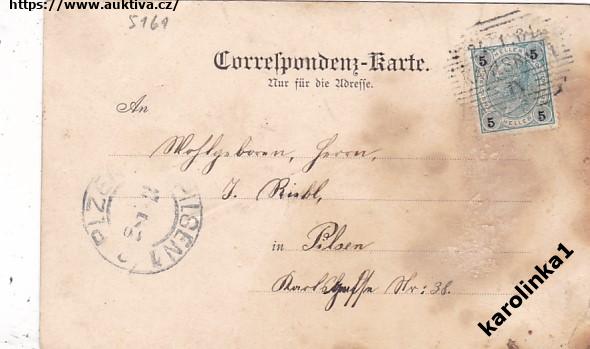 https://www.auktiva.cz/
5161
Correspondenz-Karte.
Nur für die Adresse.
An
Wohlgeboren, Herrn,
J.
in Pilsen
Nr: 38.
5 HELLER 5
5 HELLER 5
PILSEN 1
karolinka1